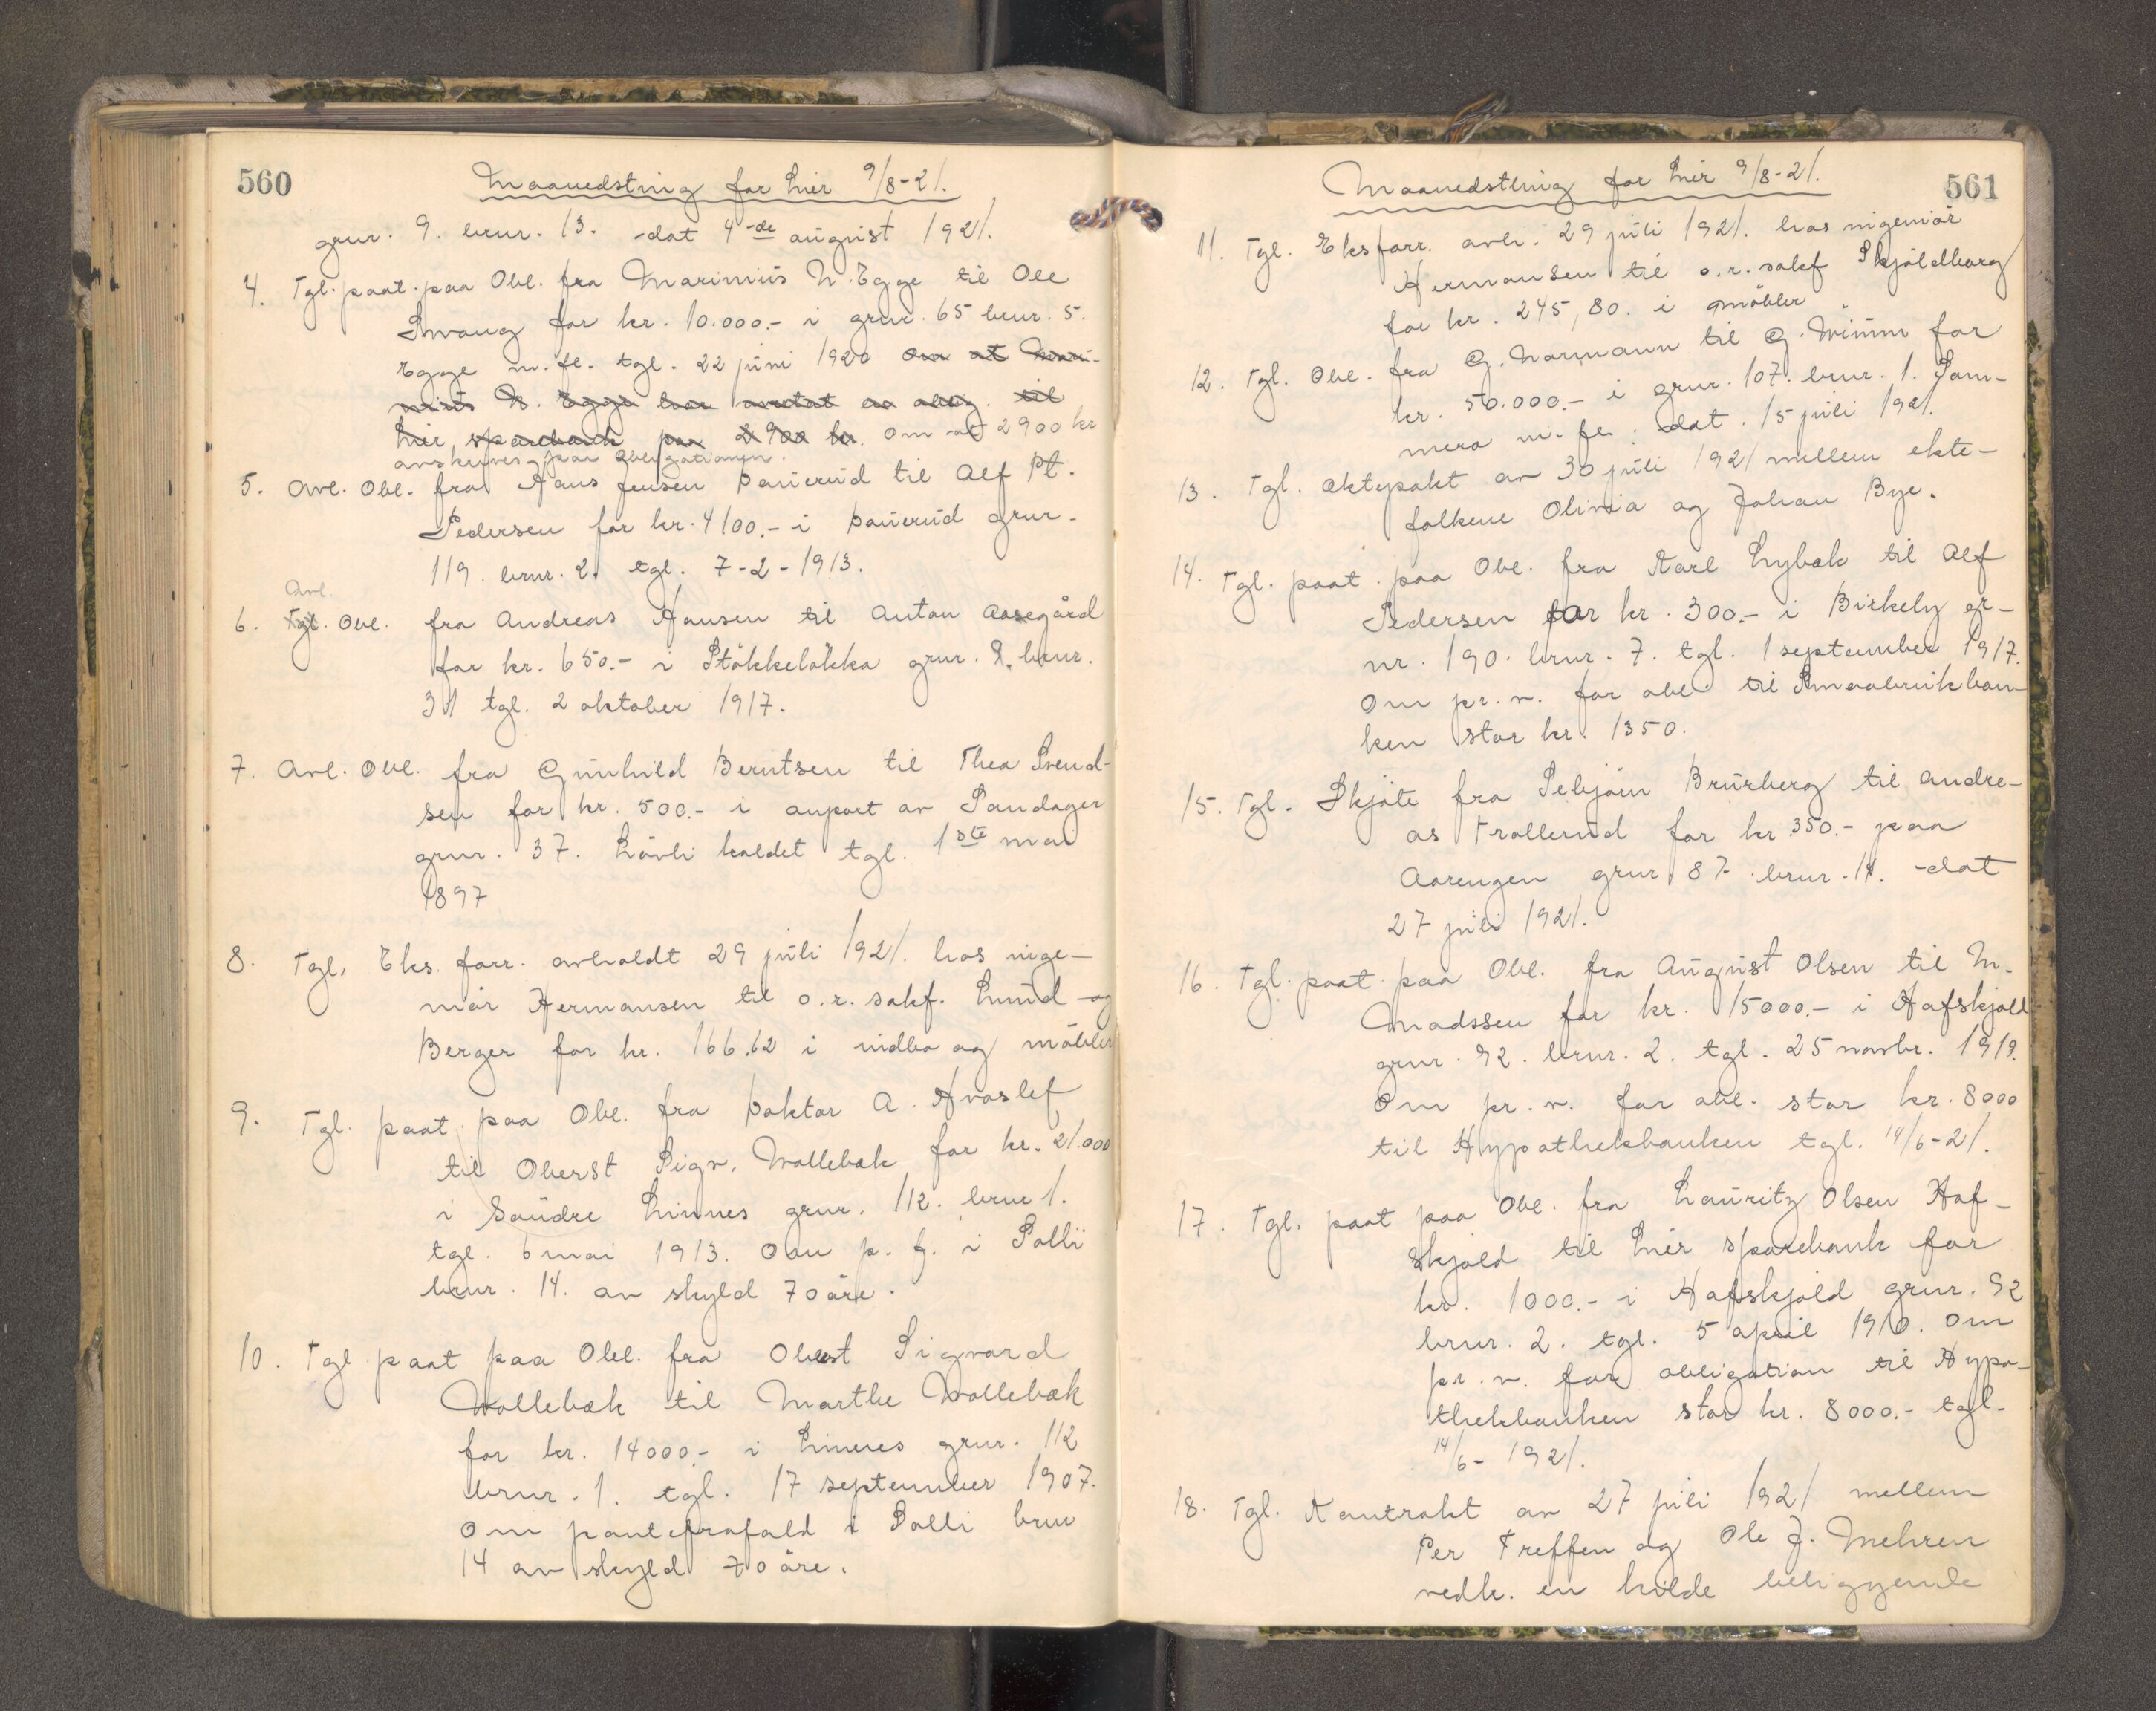 560
Maanedsting for Lier 9/8-21.
grnr. 9. brnr. 13. dat 4-de august 1921.
4. Tgl. paat. paa Obl. fra Marinius N. Egge til Ole
Svang for kr. 10.000.- i grnr. 65 brnr. 5.
Egge m. fl. tgl. 22 juni 1920 om at Mari-
nius N. Egge har
Lier sparebank paa 2900 kr. om at 2900 kr
avskrives paa Obligationen.
5. Avl. Obl. fra Hans Jensen Dauerud til Alf Pt.
Pedersen for kr. 4100.- i Dauerud grnr.
119. brnr. 2. tgl. 7-2-1913.
Avl.
6. Tgl. Obl. fra Andreas Hansen til Anton Aasegård
for kr. 650.- i Stökkelökka grnr. 8. brnr.
31 tgl. 2 oktober 1917.
7. Avl. Obl. fra Gunhild Berntsen til Thea Svend-
sen for kr. 500.- i anpart av Sandager
grnr. 37. Lövli kaldet tgl. 1ste mai
1897
8. Tgl. Eks. forr. avholdt 29 juli 1921. hos inge-
niör Hermansen til o.r. sakf. Lund og
Berger for kr. 166.62 i indbo og möbler
9. Tgl. paat. paa Obl. fra Doktor A. Hvoslef
til Oberst Sigv. Wollebæk for kr. 21.000
i Söndre Linnes grnr. 112. brnr 1.
tgl. 6 mai 1913. Om p. f. i Solli
brnr. 14. av skyld 70 öre.
10. Tgl paat paa Obl. fra Oberst Sigvard
Wollebæk til Marthe Wollebæk
for kr. 14000.- i Linnes grnr. 112
brnr. 1. tgl. 17 september 1907.
Om pantefrafald i Solli brnr
14 av skyld 70 öre.
Maanedsthing for Lier 9/8-21.
561
11. Tgl. Eksforr. avh. 29 juli 1921. hos ingeniör
Hermansen til o.r. sakf Skjöldborg
for kr. 245,80. i möbler.
12. Tgl. Obl. fra G. Normann til G. Wimm for
kr. 50.000.- i grnr. 107. brnr. 1. Som-
mero m. fl. dat. 15 juli 1921.
13. Tgl. Æktepakt av 30 juli 1921 mellem ekte-
folkene Olivia og Johan Bye.
14. Tgl. paat. paa Obl. fra Karl Lybæk til Alf
Pedersen for kr. 300.- i Birkely gr-
nr. 190. brnr. 7. tgl. 1 september 1917.
Om pr. v. for obl. til Smaabrukban-
ken stor kr. 1350.
15. Tgl. Skjöte fra Sebjörn Brurberg til Andre-
as Trollerud for kr 350.- paa
Aarengen grnr 87 brnr. 14. dat
27 juli 1921.
16. Tgl. paat. paa Obl. fra August Olsen til M.
Madssen for kr. 15000.- i Hafskjold
grnr. 92. brnr. 2. tgl. 25 novbr. 1919.
Om pr. v. for obl. stor kr. 8000
til Hypothekbanken tgl. 14/6-21.
17. Tgl. paat paa Obl. fra Lauritz Olsen Haf-
skjold til Lier sparebank for
kr. 1000.- i Hafskjold grnr. 92
brnr. 2. tgl. 5 april 1910. Om
pr. v. for obligation til Hypo-
thekbanken stor kr. 8000.- tgl.
14/6-1921.
18. Tgl. Kontrakt av 27 juli 1921 mellem
Per Treffen og Ole J. Mehren
vedk. en kilde beliggende